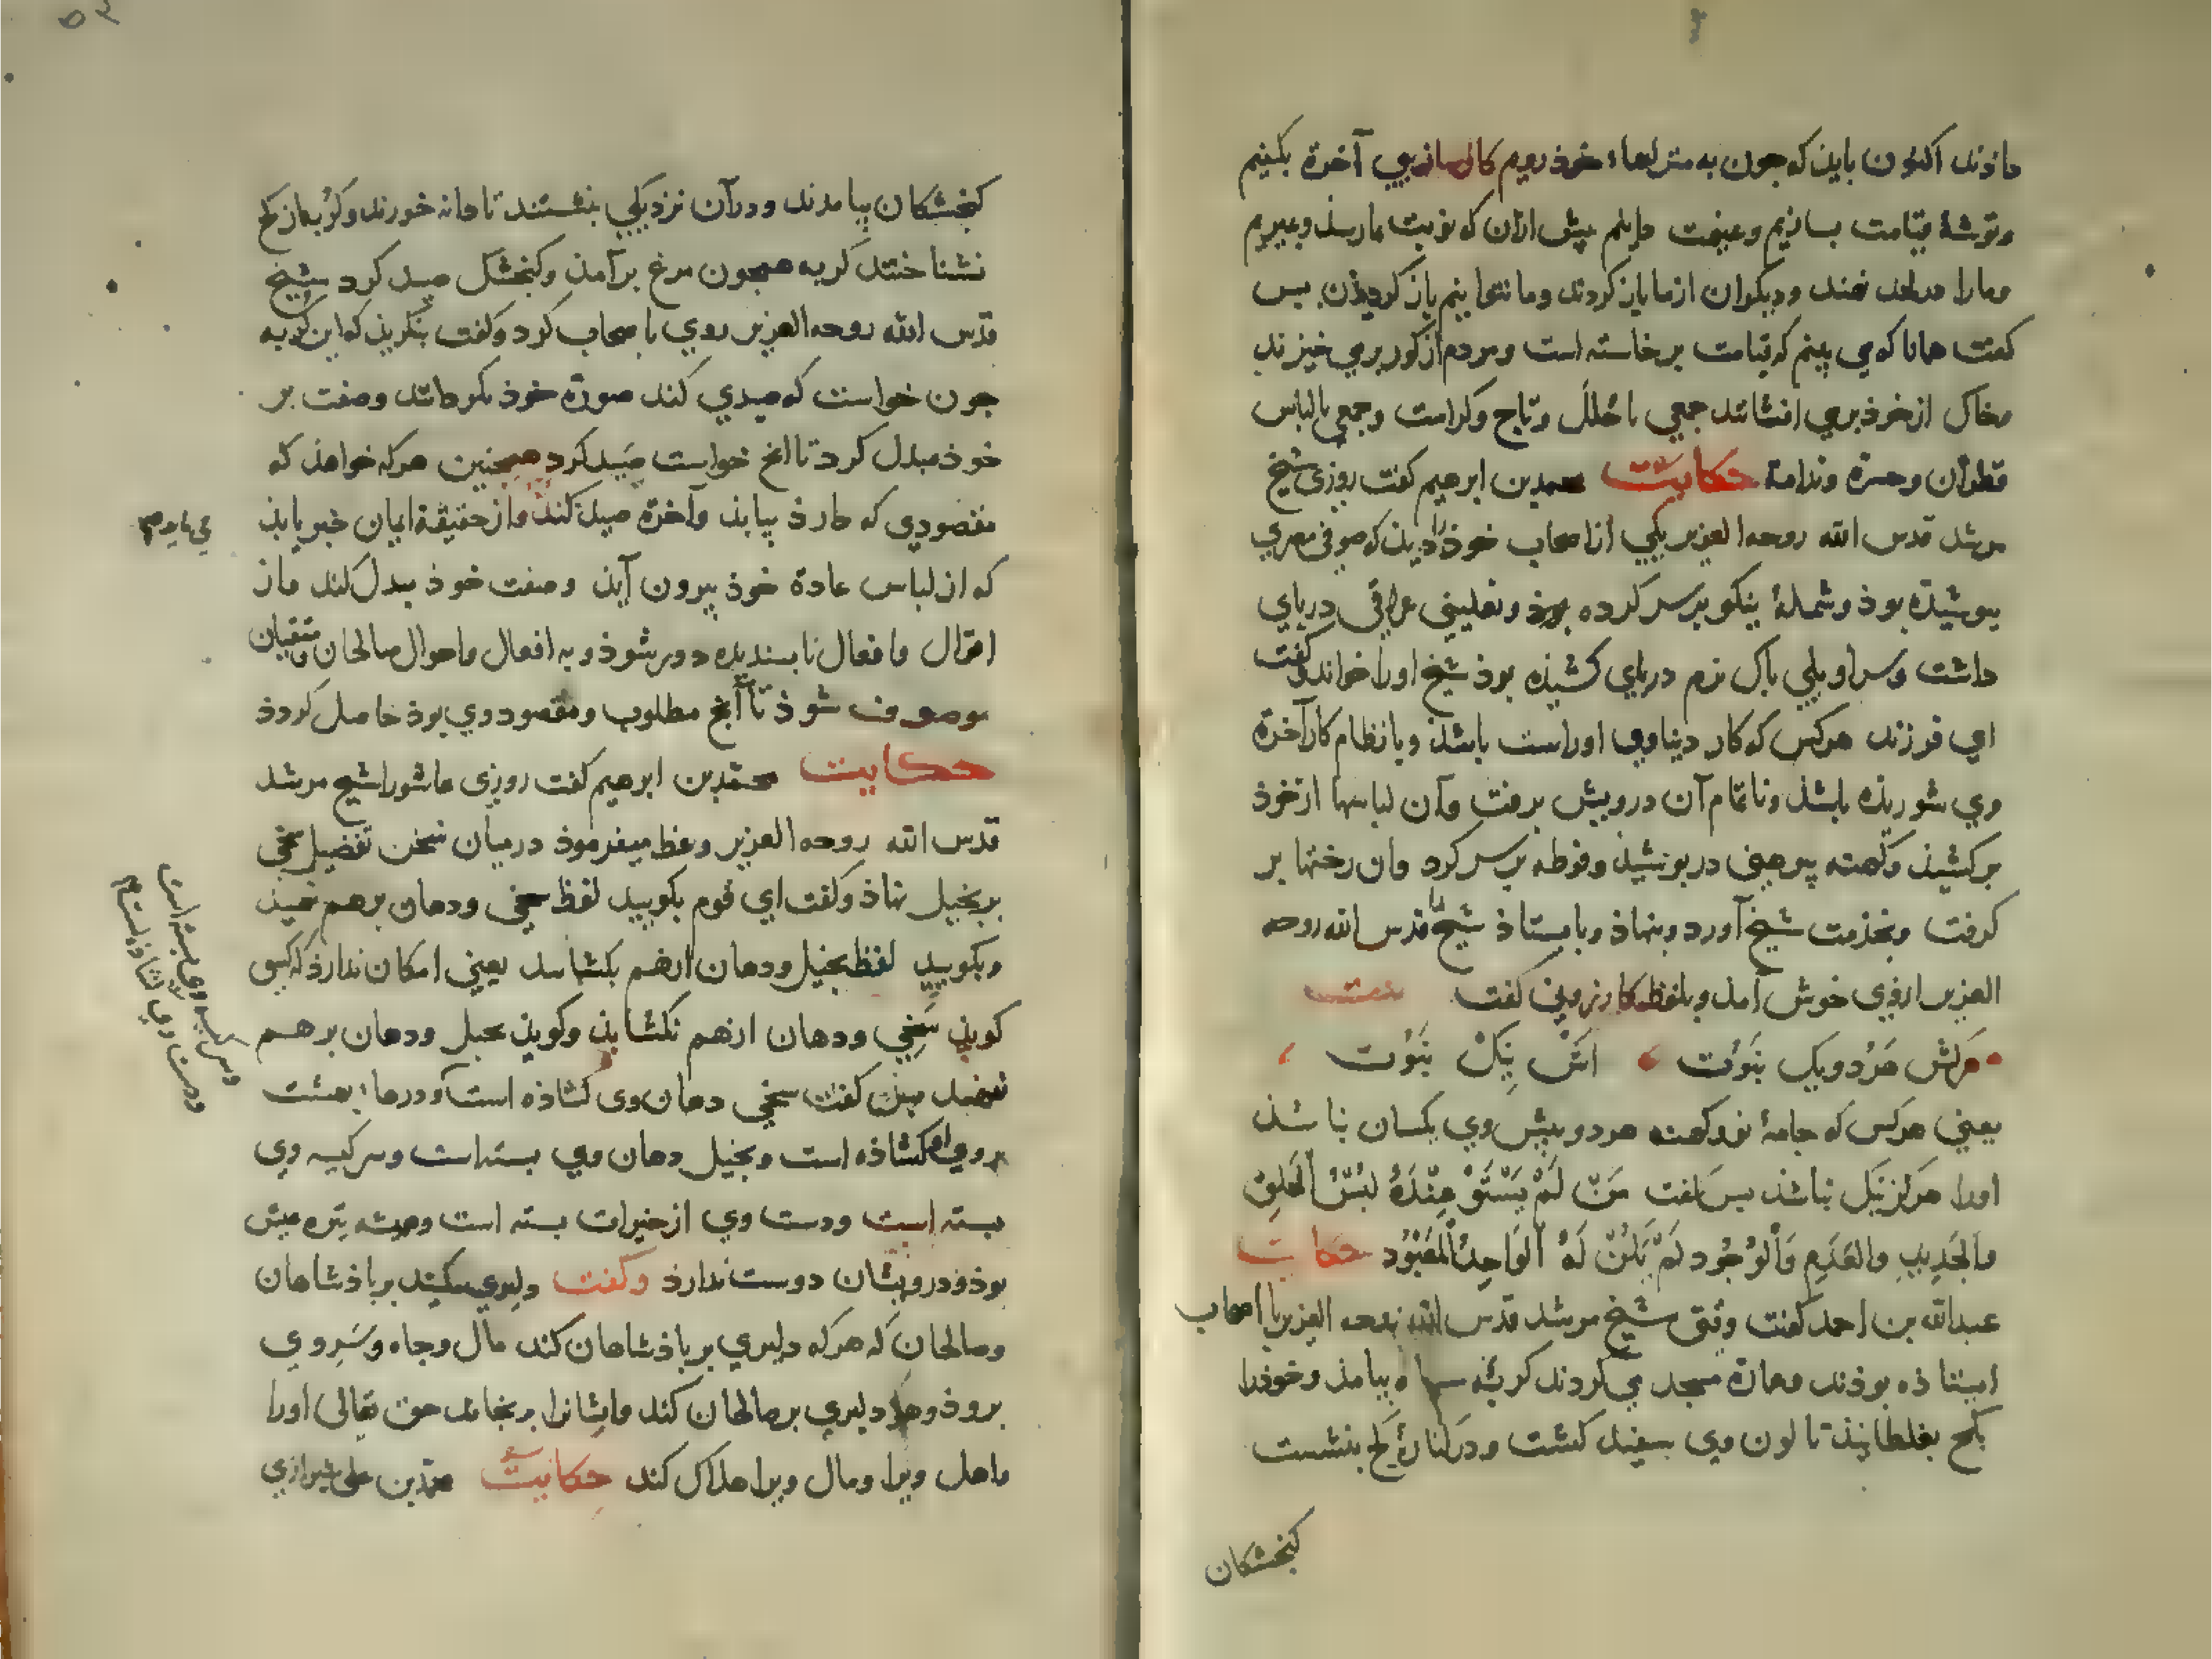 ماندند اکنون باید که جون به منزلهاء خوذ رویم کارسازیِ آخرة بکنیم
وتوشهٔ قیامت بسازیم وغنیمت دانیم پیش ازان که نوبت ما رسذ وبمیریم
وما را در لحد نهند ودیکران از ما باز کردند وما نتوانیم باز کردیذن بس
کفت همانا که می بینم که قیامت برخاسته است ومردم از کور برمی خیزند
وخاک از خوذ برمی افشانند جمعی با حُلل وتاج وکرامت وجمعی با لباس
قطران وحسرة وندامة حکایت محمد بن ابرهیم کفت روزی شیخ
مرشد قدس الله روحه العزیز یکی از اصحاب خوذ را دید که صوفی مصری
بوشیذه بوذ وشملهٔ نیکو بر سر کرده بوذ ونعلینی عراقی در پای
داشت وسراویلی باک نرم در پای کشیذه بوذ شیخ اورا خواند وکفت
ای فرزند هرکس که کار دنیاوی اوراست باشذ وبا نظام کار آخرة
وی شوریذه باشذ وناتمام آن درویش برفت وآن لباسها از خوذ
برکشیذ وکهنه پیرهنی در بوشیذ وفوطه بر سر کرد وان رختها بر
کرفت وبخذمت شیخ آورد وبنهاذ وبایستاذ شیخ را قدس الله روحه
العزیز ازوی خوش آمذ وبلفظ کازرونی کفت
هرکش هَرْدو یک نَبُوت اَش نیک نَبُوت
یعنی هرکس که جامهٔ نو وکهنه هردو بیش وی یکسان نباشذ
اورا هرکز نیک نباشذ بس کفت مَنْ لَمْ یَسْتَوْ عِنْدَهُ لُبْسُ الْخَلِقِ
والجَدِیدِ والعَدَمِ وَالْوُجُود لَمْ یَکُنْ لَهُ الوَاحِدُ المَعْبُود حکایت
عبدالله بن احمد کفت وقتی شیخ مرشد قدس الله روحه العزیز با اصحاب
ایستاذه بوذند وعمارة مسجد می کردند کربهٔ سیاه بیامذ وخوذ را
بکج بغلطانیذ تا لون وی سفیذ کشت ودر کنارهٔ کج بنشست
کنجشکان
کنجشکان بیامدند ودرآن نزدیکی بنشستند تا دانه خورند وکربه از کج
نشناختند کربه همجون مرغ برآمذ وکنجشک صید کرد شیخ
قدس الله روحه العزیز روی با اصحاب کرد وکفت بنکریذ که این کربه
جون خواست که صیدی کند صورة خوذ بکردانید وصفت بر
خوذ مبدل کرد تا انج خواست صَید کرد همجنین هرکه خواهذ که
مقصودی که دارذ بیابذ وآخرة صید کنذ واز حقیقة ایمان خبر یابذ
که از لباس عادة خوذ بیرون آیذ وصفت خوذ مبدل کند واز
اقوال وافعال نابسندیده دور شوذ وبه افعال واحوال صالحان ومتقیان
موصوف شوذ تا آنج مطلوب ومقصود وی بوذ حاصل کردذ
حکایت محمد بن ابرهیم کفت روزی عاشورا شیخ مرشد
قدس الله روحه العزیز وعظ میفرموذ درمیان سخن تفضیل سخی
بر بخیل نهاذ وکفت ای قوم بکویید لفظ سخی ودهان برهم نهید
وبکویید لفظ بخیل ودهان ازهم بکشایید یعنی امکان ندارذ که کسی
کویذ سَخِی ودهان ازهم نکشایذ وکویذ بخیل ودهان برهم
نهد کفت سخی دهان وی کشاذه است ودرهاء بهشت
بر وی کشاذه است وبخیل دهان وی بسته است وسر کیسه وی
بسته است ودست وی از خیرات بسته است وهمیشه تیره عیش
بوذ ودرویشان دوست ندارذ وکفت ولیری مکنید بر باذشاهان
وصالحان که هرکه دلیری بر باذشاهان کند مال وجاه وسَر وی
بروذ وهرکه دلیری بر صالحان کند وایشانرا برنجاند حق تعالی اورا
واهل ویرا ومال ویرا هلاک کند حکایت محمد بن علی شیرازی
وسر کیسه وی بسته است